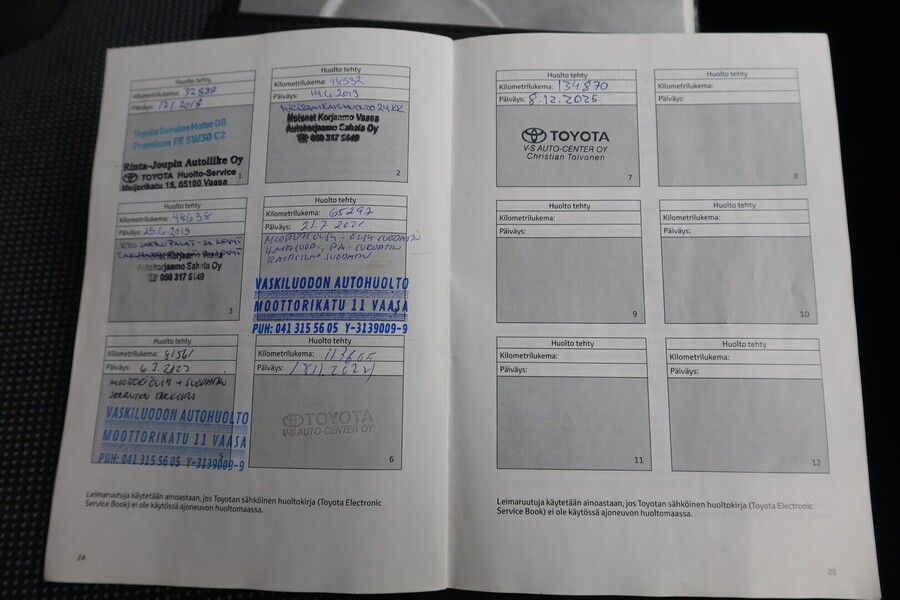 Huolto tehty
Kilometrilukema: 32838
Päiväys: 17.1.2018
Toyota Genuine Motor Oil
Premium FE 5W30 C2
Rinta-Joupin Autoliike Oy
TOYOTA Huolto-Service
Meijerikatu 15, 65100 Vaasa
1
Huolto tehty
Kilometrilukema: 48532
Päiväys: 14.6.2019
MÄÄRÄAIKAISHUOLTO 24 KK
Motonet Korjaamo Vaasa
Autokorjaamo Sahala Oy
☎ 050 317 5149
2
Huolto tehty
Kilometrilukema: 48638
Päiväys: 25.6.2019
Motonet Korjaamo Vaasa
Autokorjaamo Sahala Oy
☎ 050 317 5149
3
Huolto tehty
Kilometrilukema: 65292
Päiväys: 21.7.2021
MOOTTORIÖLJY - ÖLJY SUODATIN
RAITISILMA SUODATIN
VASKILUODON AUTOHUOLTO
MOOTTORIKATU 11 VAASA
PUH: 041 315 56 05 Y-3139009-9
Huolto tehty
Kilometrilukema: 81561
Päiväys: 6.3.2023
MOOTTORIÖLJY + SUODATIN
JARRUJEN TARKASTUS
VASKILUODON AUTOHUOLTO
MOOTTORIKATU 11 VAASA
PUH: 041 315 56 05 Y-3139009-9
5
Huolto tehty
Kilometrilukema: 113665
Päiväys:
TOYOTA
V-S AUTO-CENTER OY
6
Leimaruutuja käytetään ainoastaan, jos Toyotan sähköinen huoltokirja (Toyota Electronic
Service Book) ei ole käytössä ajoneuvon huoltomaassa.
24
Huolto tehty
Kilometrilukema: 134870
Päiväys: 8.12.2025
TOYOTA
V-S AUTO-CENTER OY
Christian Toivonen
7
Huolto tehty
Kilometrilukema:
Päiväys:
8
Huolto tehty
Kilometrilukema:
Päiväys:
9
Huolto tehty
Kilometrilukema:
Päiväys:
10
Huolto tehty
Kilometrilukema:
Päiväys:
11
Huolto tehty
Kilometrilukema:
Päiväys:
12
Leimaruutuja käytetään ainoastaan, jos Toyotan sähköinen huoltokirja (Toyota Electronic
Service Book) ei ole käytössä ajoneuvon huoltomaassa.
25